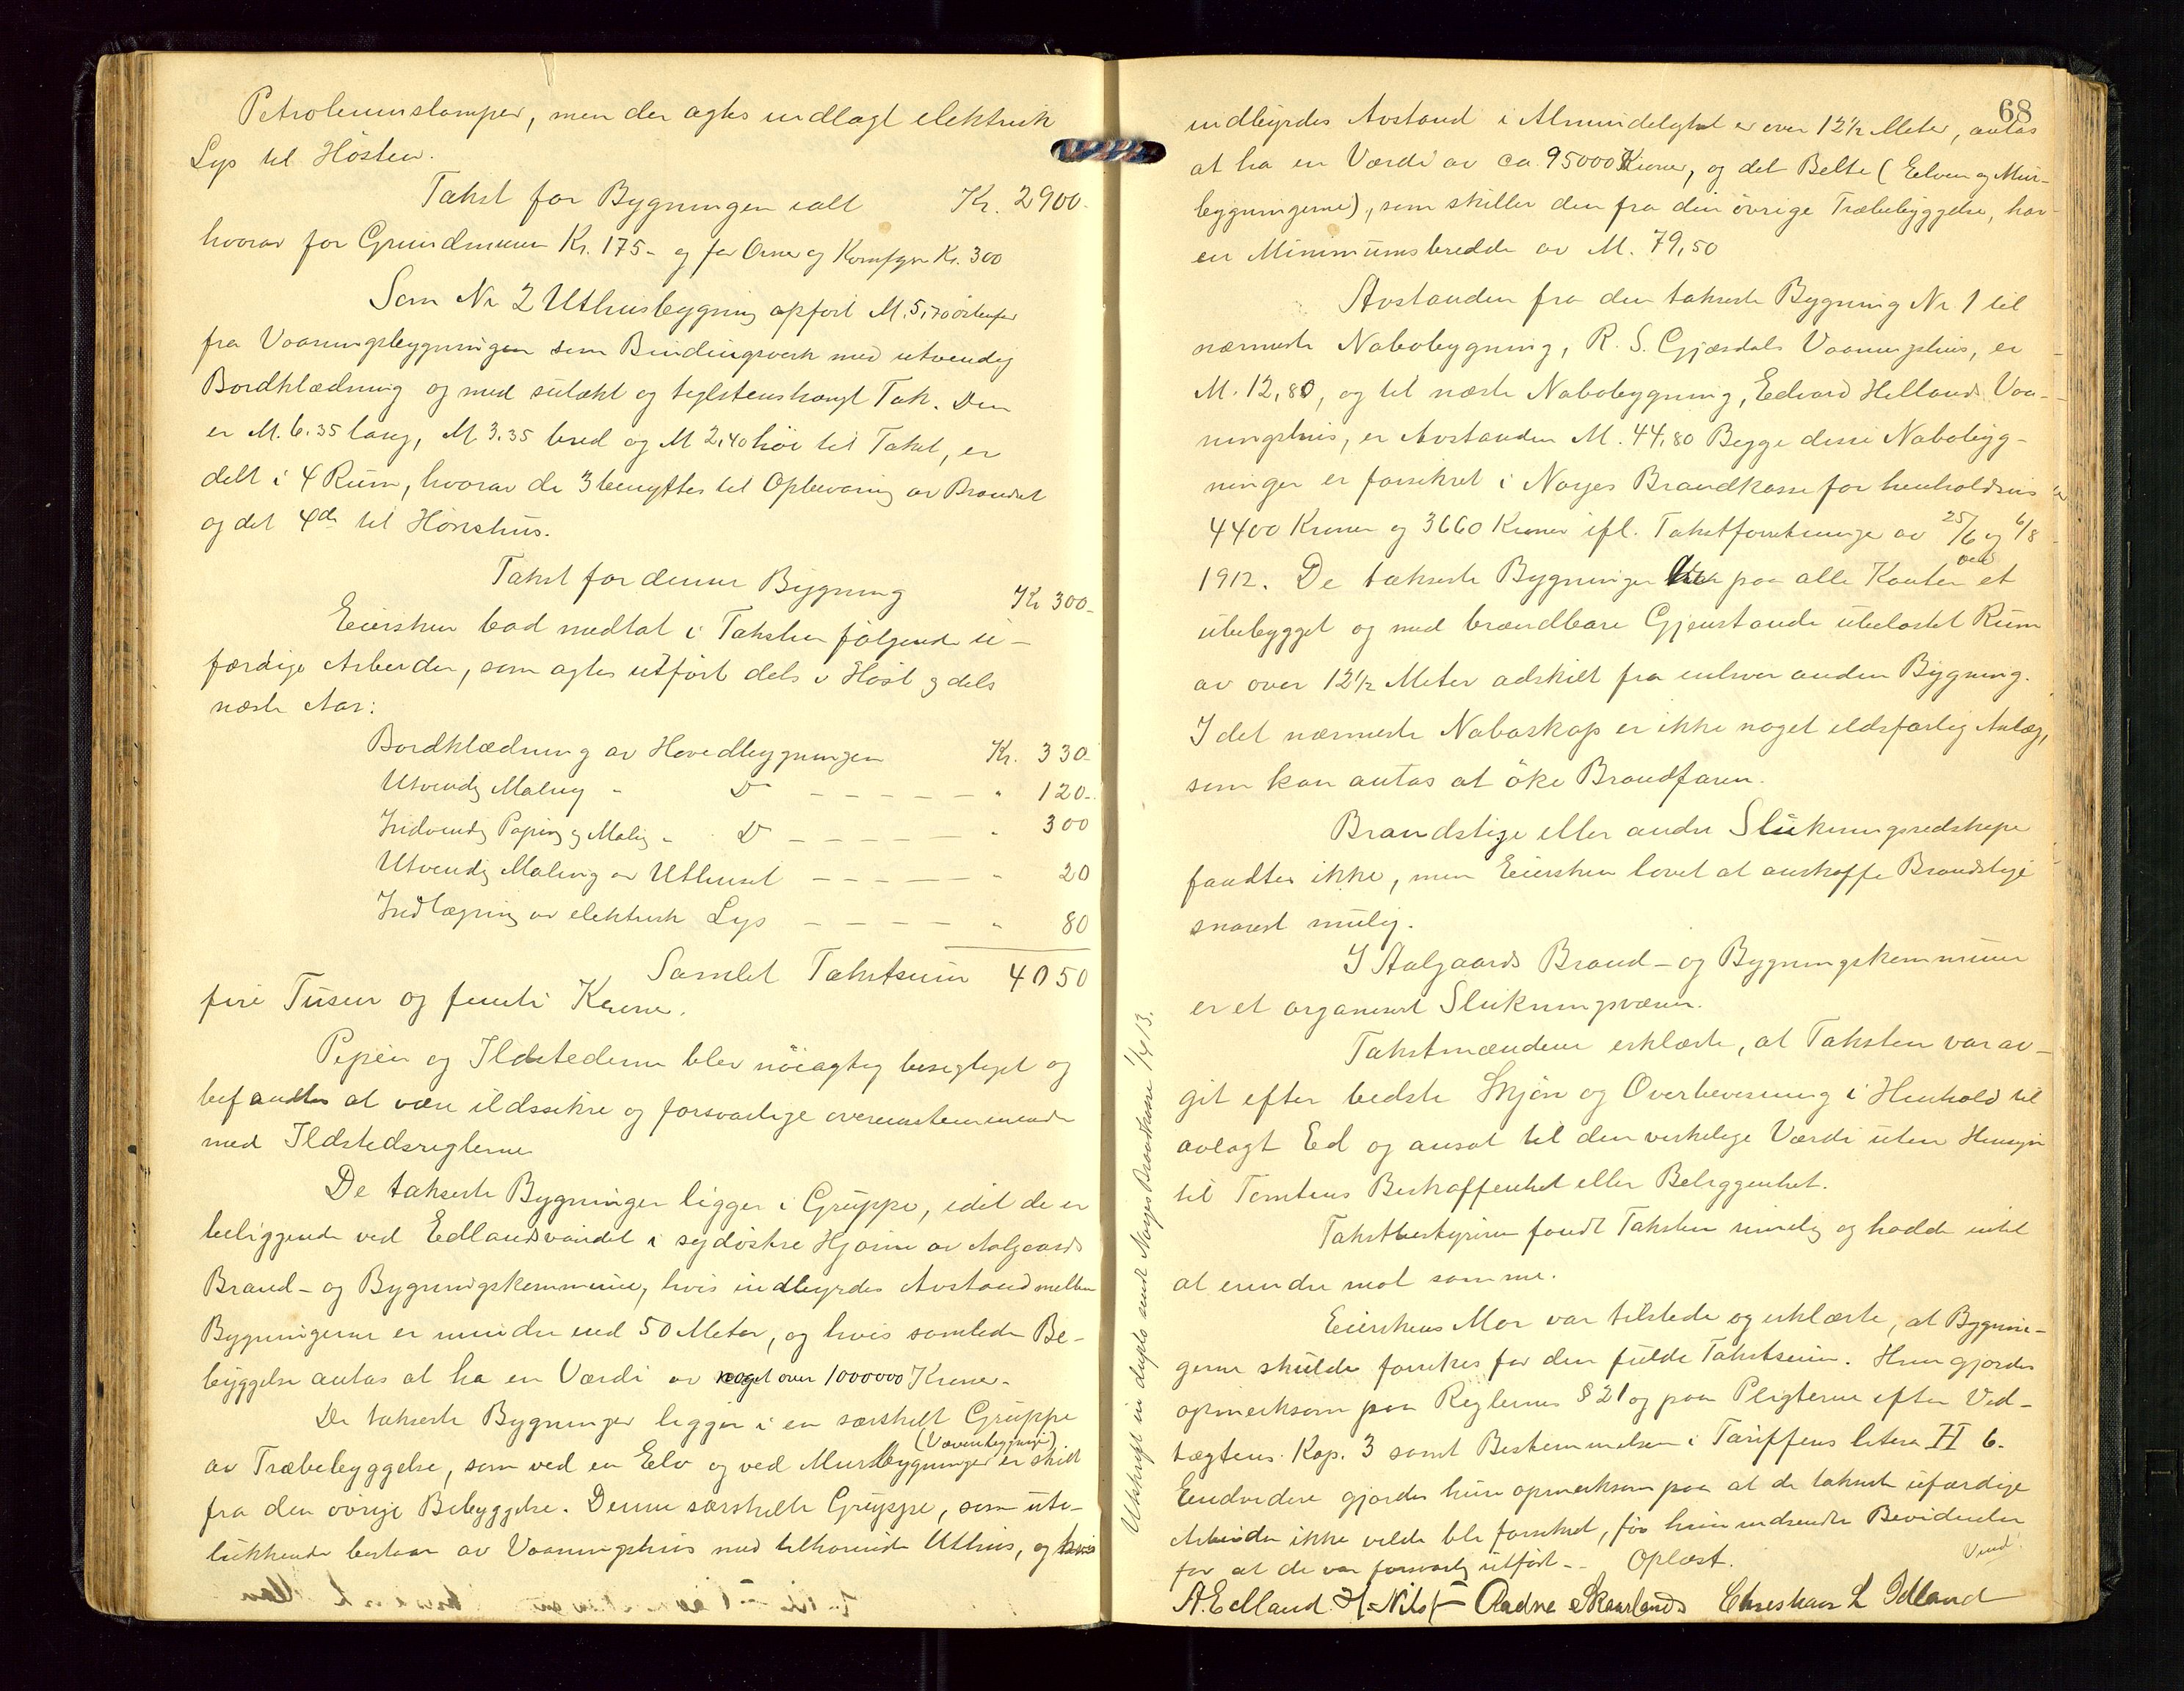 Petroleumslamper, men der agtes indlagt elektrisk
Lys til Høsten.
Takst for Bygningen ialt Kr. 2900.
hvorav for Grundmuren Kr. 175.- og for Ovner og Komfyr Kr. 300
Som Nr 2 Uthusbygning opført M. 5,70 østenfor
fra Vaaningsbygningen som Bindingsverk med utvendig
Bordklædning og med sutækt og teglstenshængt Tak. Den
er M. 6.35 lang, M 3.35 bred og M 2,40 høi til Taket, er
delt i 4 Rum, hvorav de 3 benyttes til Opbevaring av Brændsel
og det 4de til Hønshus.
Takst for denne Bygning Kr 300-
Eiersken bad medtat i Taksten følgende u-
færdige Arbeider, som agtes utført dels i Høst og dels
næste Aar:
Bordklædning av Hovedbygningen Kr. 330-
Utvendig Maling " Do - - - - - " 120-
Indvendig Papiring og Maling " Do - - - - " 300
Utvendig Maling av Uthuset - - - - - " 20
Indlægning av elektrisk Lys - - - - " 80
Samlet Takstsum 4050
fire Tusen og femti Kroner.
Pipen og Ildstederne blev nøiagtig besigtiget og
befandtes at være ildssikre og forsvarlige overensstemmende
med Ildstedsreglerne
De takserte Bygninger ligger i Gruppe, idet de er
beliggende ved Edlandsvandet i sydøstre Hjørne av Aalgaards
Brand- og Bygningskommune, hvis indbyrdes Avstand mellem
Bygningerne er mindre end 50 Meter, og hvis samlede Be-
byggelse antas at ha en Værdi av noget over 1000000 Kroner.
De takserte Bygninger ligger i en særskilt Gruppe
(Væveribygninger)
av Træbebyggelse, som ved en Elv og ved Murbygninger er skilt
fra den øvrige Bebyggelse. Denne særskilte Gruppe, som ute-
lukkende bestaar av Vaaningshus med tilhørende Uthus, og hvis
68
indbyrdes Avstand i Almindelighet er over 12½ Meter, antas
at ha en Værdi av ca 95000 Kroner, og det Belte (Elven og Mur-
bygningerne), som skiller den fra den øvrige Træbebyggelse, har
en Minimumsbredde av M. 79,50
Avstanden fra den takserte Bygning Nr 1 til
nærmeste Nabobygning, R. S. Gjæsdals Vaaningshus, er
M. 12,80, og til næste Nabobygning, Edvard Hellands Vaa-
ningshus, er Avstanden M. 44,80 Begge disse Nabobyg-
ninger er forsikret i Norges Brandkasse for henholdsvis
4400 Kroner og 3660 Kroner ifl. Takstforretninger av 25/6 og 6/8
1912. De takserte Bygninger er paa alle Kanter ved et
ubebygget og med brændbare Gjenstande ubelastet Rum
av over 12½ Meter adskilt fra enhver anden Bygning.
I det nærmeste Naboskap er ikke noget ildsfarlig Anlæg,
som kan antas at øke Brandfaren.
Brandstige eller andre Slukningsredskaper
fandtes ikke, men Eiersken lovet at anskaffe Brandstige
snarest mulig.
I Aalgaards Brand- og Bygningskommune
er et organisert Slukningsvæsen.
Takstmændene erklærte, at Taksten var av-
git efter bedste Skjøn og Overbevisning i Henhold til
avlagt Ed og ansat til den virkelige Værdi uten Hensyn
til Tomtens Beskaffenhet eller Beliggenhet.
Takstbestyreren fandt Taksten rimelig og hadde intet
at erindre mot samme.
Eierskens Mor var tilstede og erklærte, at Bygnin-
gerne skulde forsikres for den fulde Takstsum. Hun gjordes
opmerksom paa Reglernes § 21 og paa Pligterne efter Ved-
tægtens Kap. 3 samt Bestemmelsen i Tariffens litera H 6.
Endvidere gjordes hun opmerksom paa at de takserte ufærdige
Arbeider ikke vilde bli forsikret, før hun indsendte Bevidnelse
for at de var forsvarlig utført. - Oplæst.
Vend!
A. Edland H. Nils Aadne Skaarland Christian L Idland
Utskrift in duplo sendt Norges Brandkasse 1913.